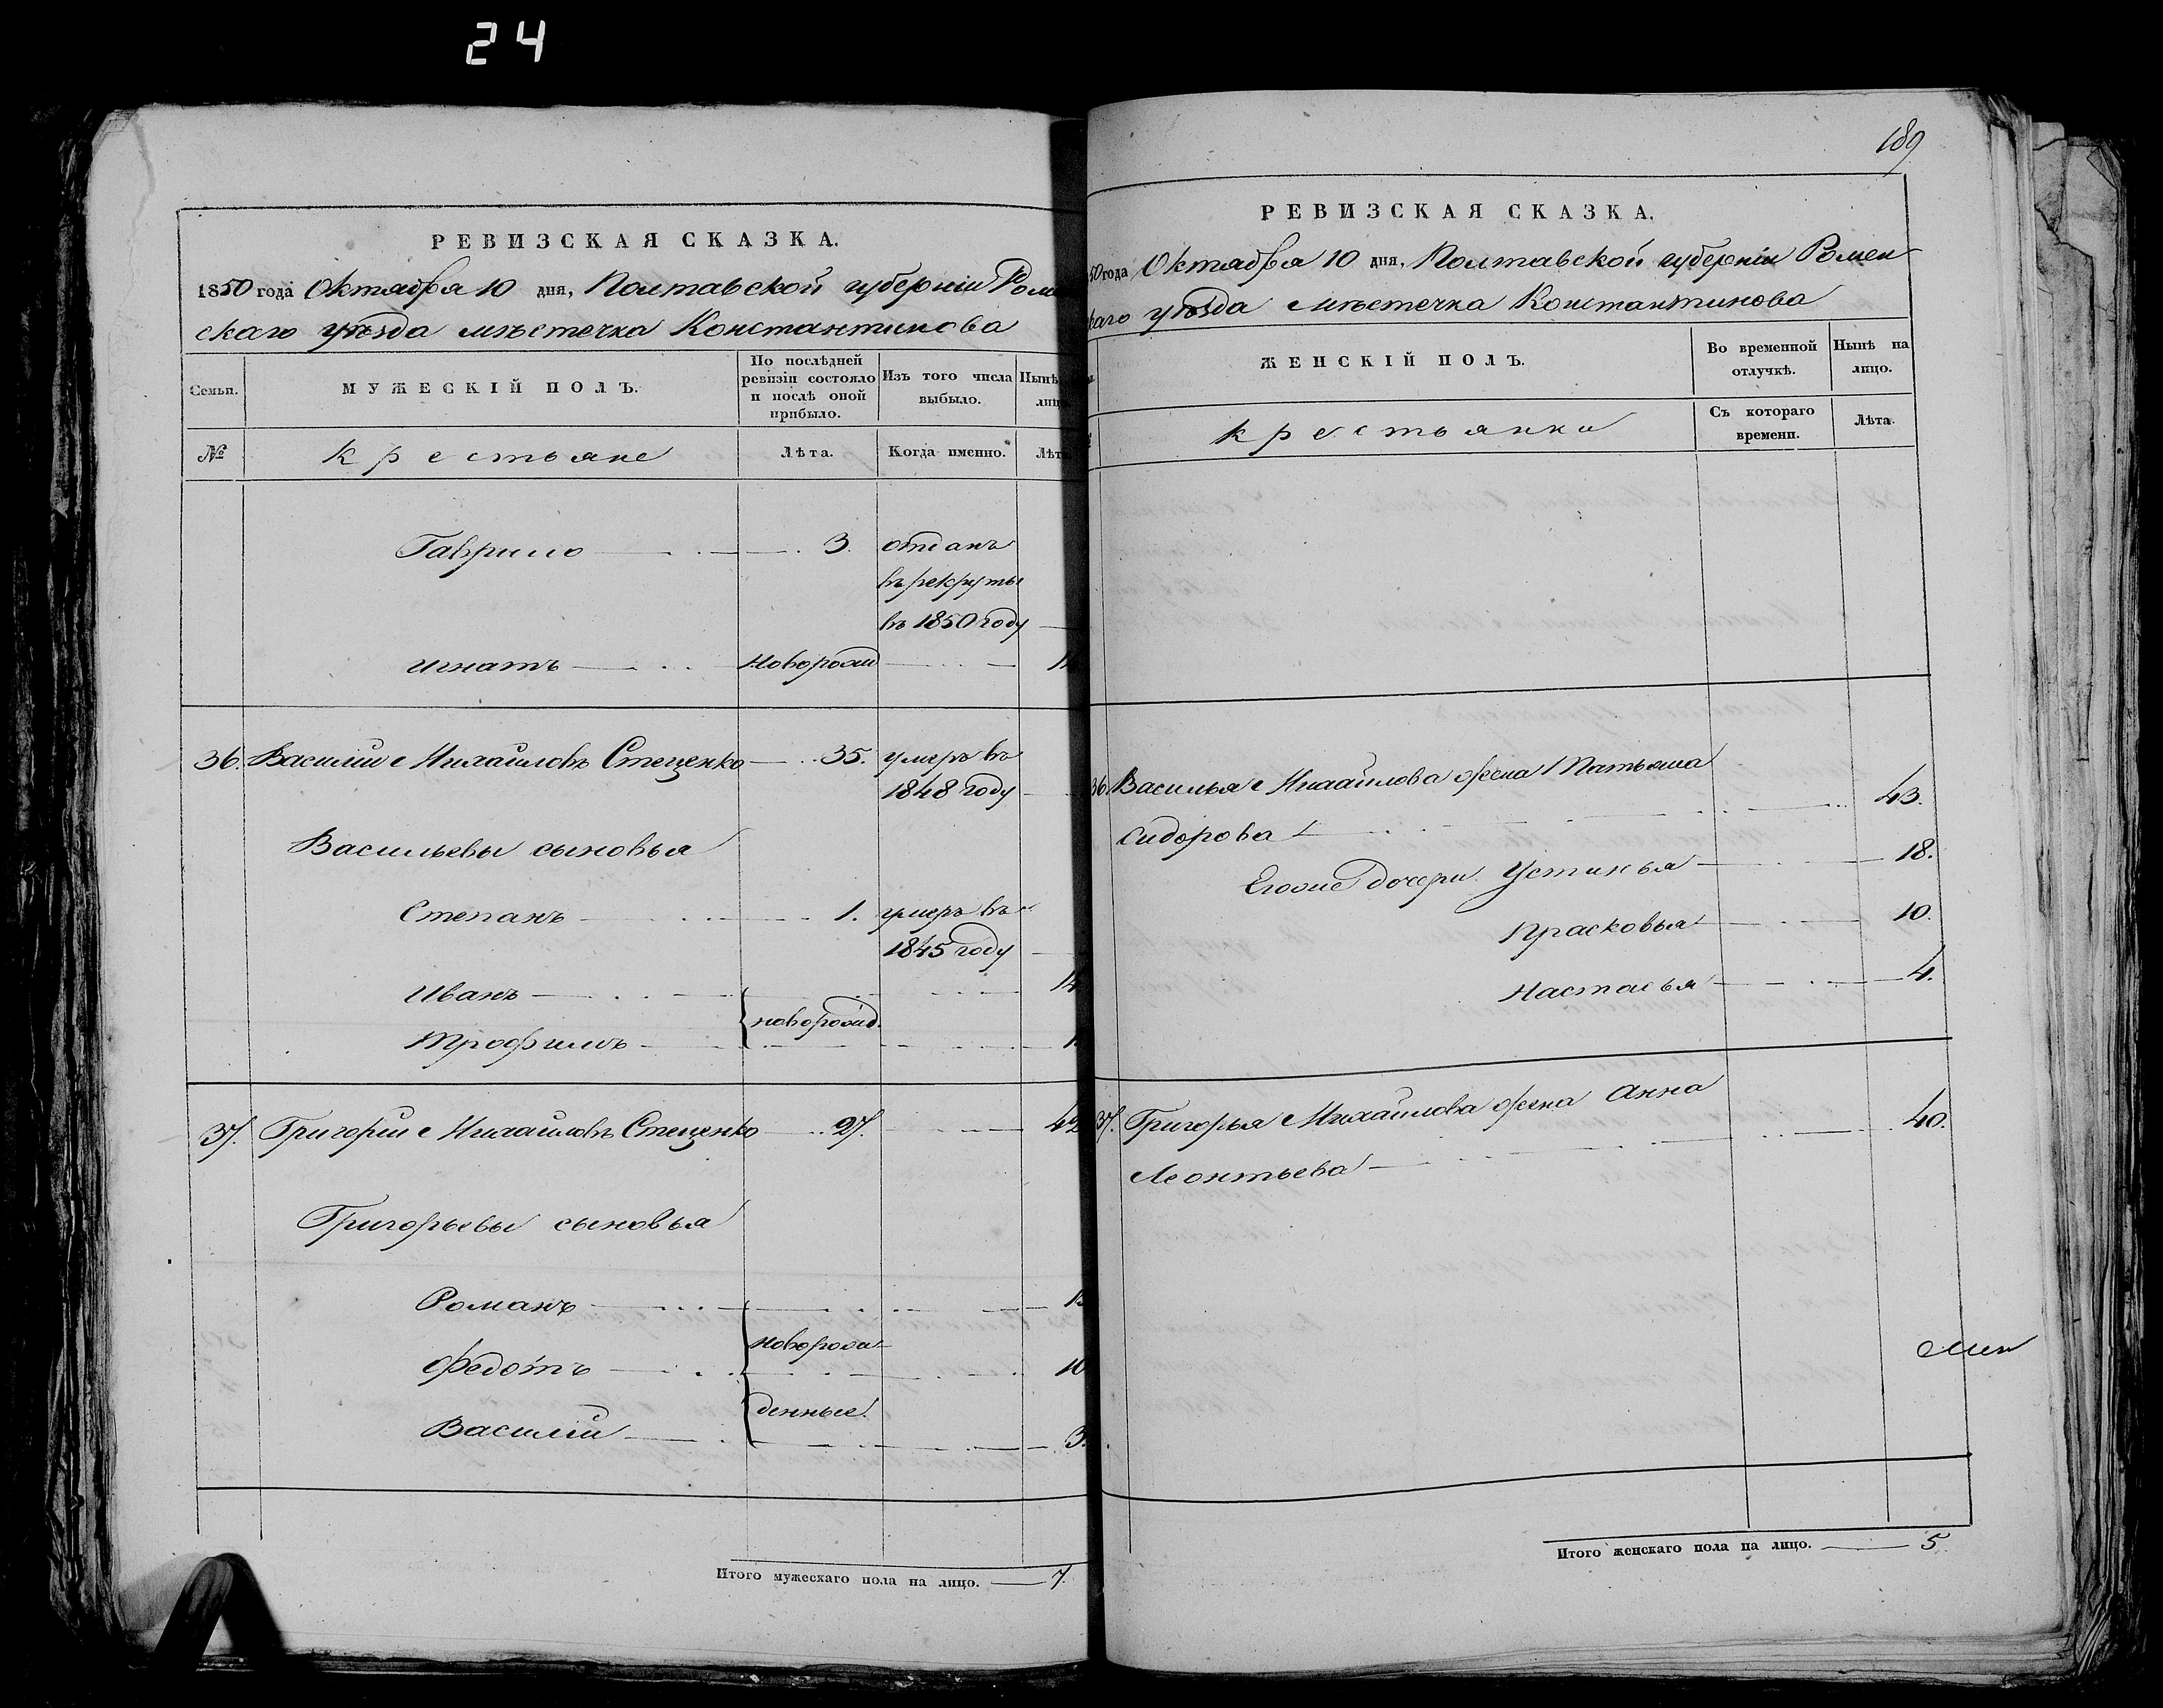 24
РЕВИЗСКАЯ СКАЗКА.
1850 года Октября 10 дня, Полтавской губерніи Роме
скаго уѣзда мѣстечка Константинова
Семьи.
МУЖЕСКІЙ ПОЛЪ.
По послѣдней ревизіи состояло и послѣ оной прибыло.
Изъ того числа выбыло.
Нынѣ
лиц
№
крестьяне
Лѣта.
Когда именно.
Лѣт
Гаврило 3. отданъ
въ рекруты
въ 1850 году
Игнатъ Новорожд
36. Василій Михайловъ Стеценко 35. умеръ въ
1848 году
Васильевы сыновья
Степанъ 1. умеръ въ
1845 году
Иванъ 14
новорожд.
Трофимъ 1
37. Григорій Михайловъ Стеценко 27. 42
Григорьевы сыновья
Романъ
новорож
Федотъ 10
денные.
Василій 3.
Итого мужескаго пола на лицо. 7.
189
РЕВИЗСКАЯ СКАЗКА.
50 года Октября 10 дня, Полтавской губерніи Ромен
скаго уѣзда мѣстечка Константинова
ЖЕНСКІЙ ПОЛЪ.
Во временной отлучкѣ.
Нынѣ на лицо.
крестьянки
Съ котораго времени.
Лѣта.
36. Василья Михайлова жена Татьяна
Сидорова 43.
Его же дочери Устинья 18.
Прасковья 10.
Настасья 4.
37. Григорья Михайлова жена Анна
Леонтьева 40.
Итого женскаго пола на лицо. 5